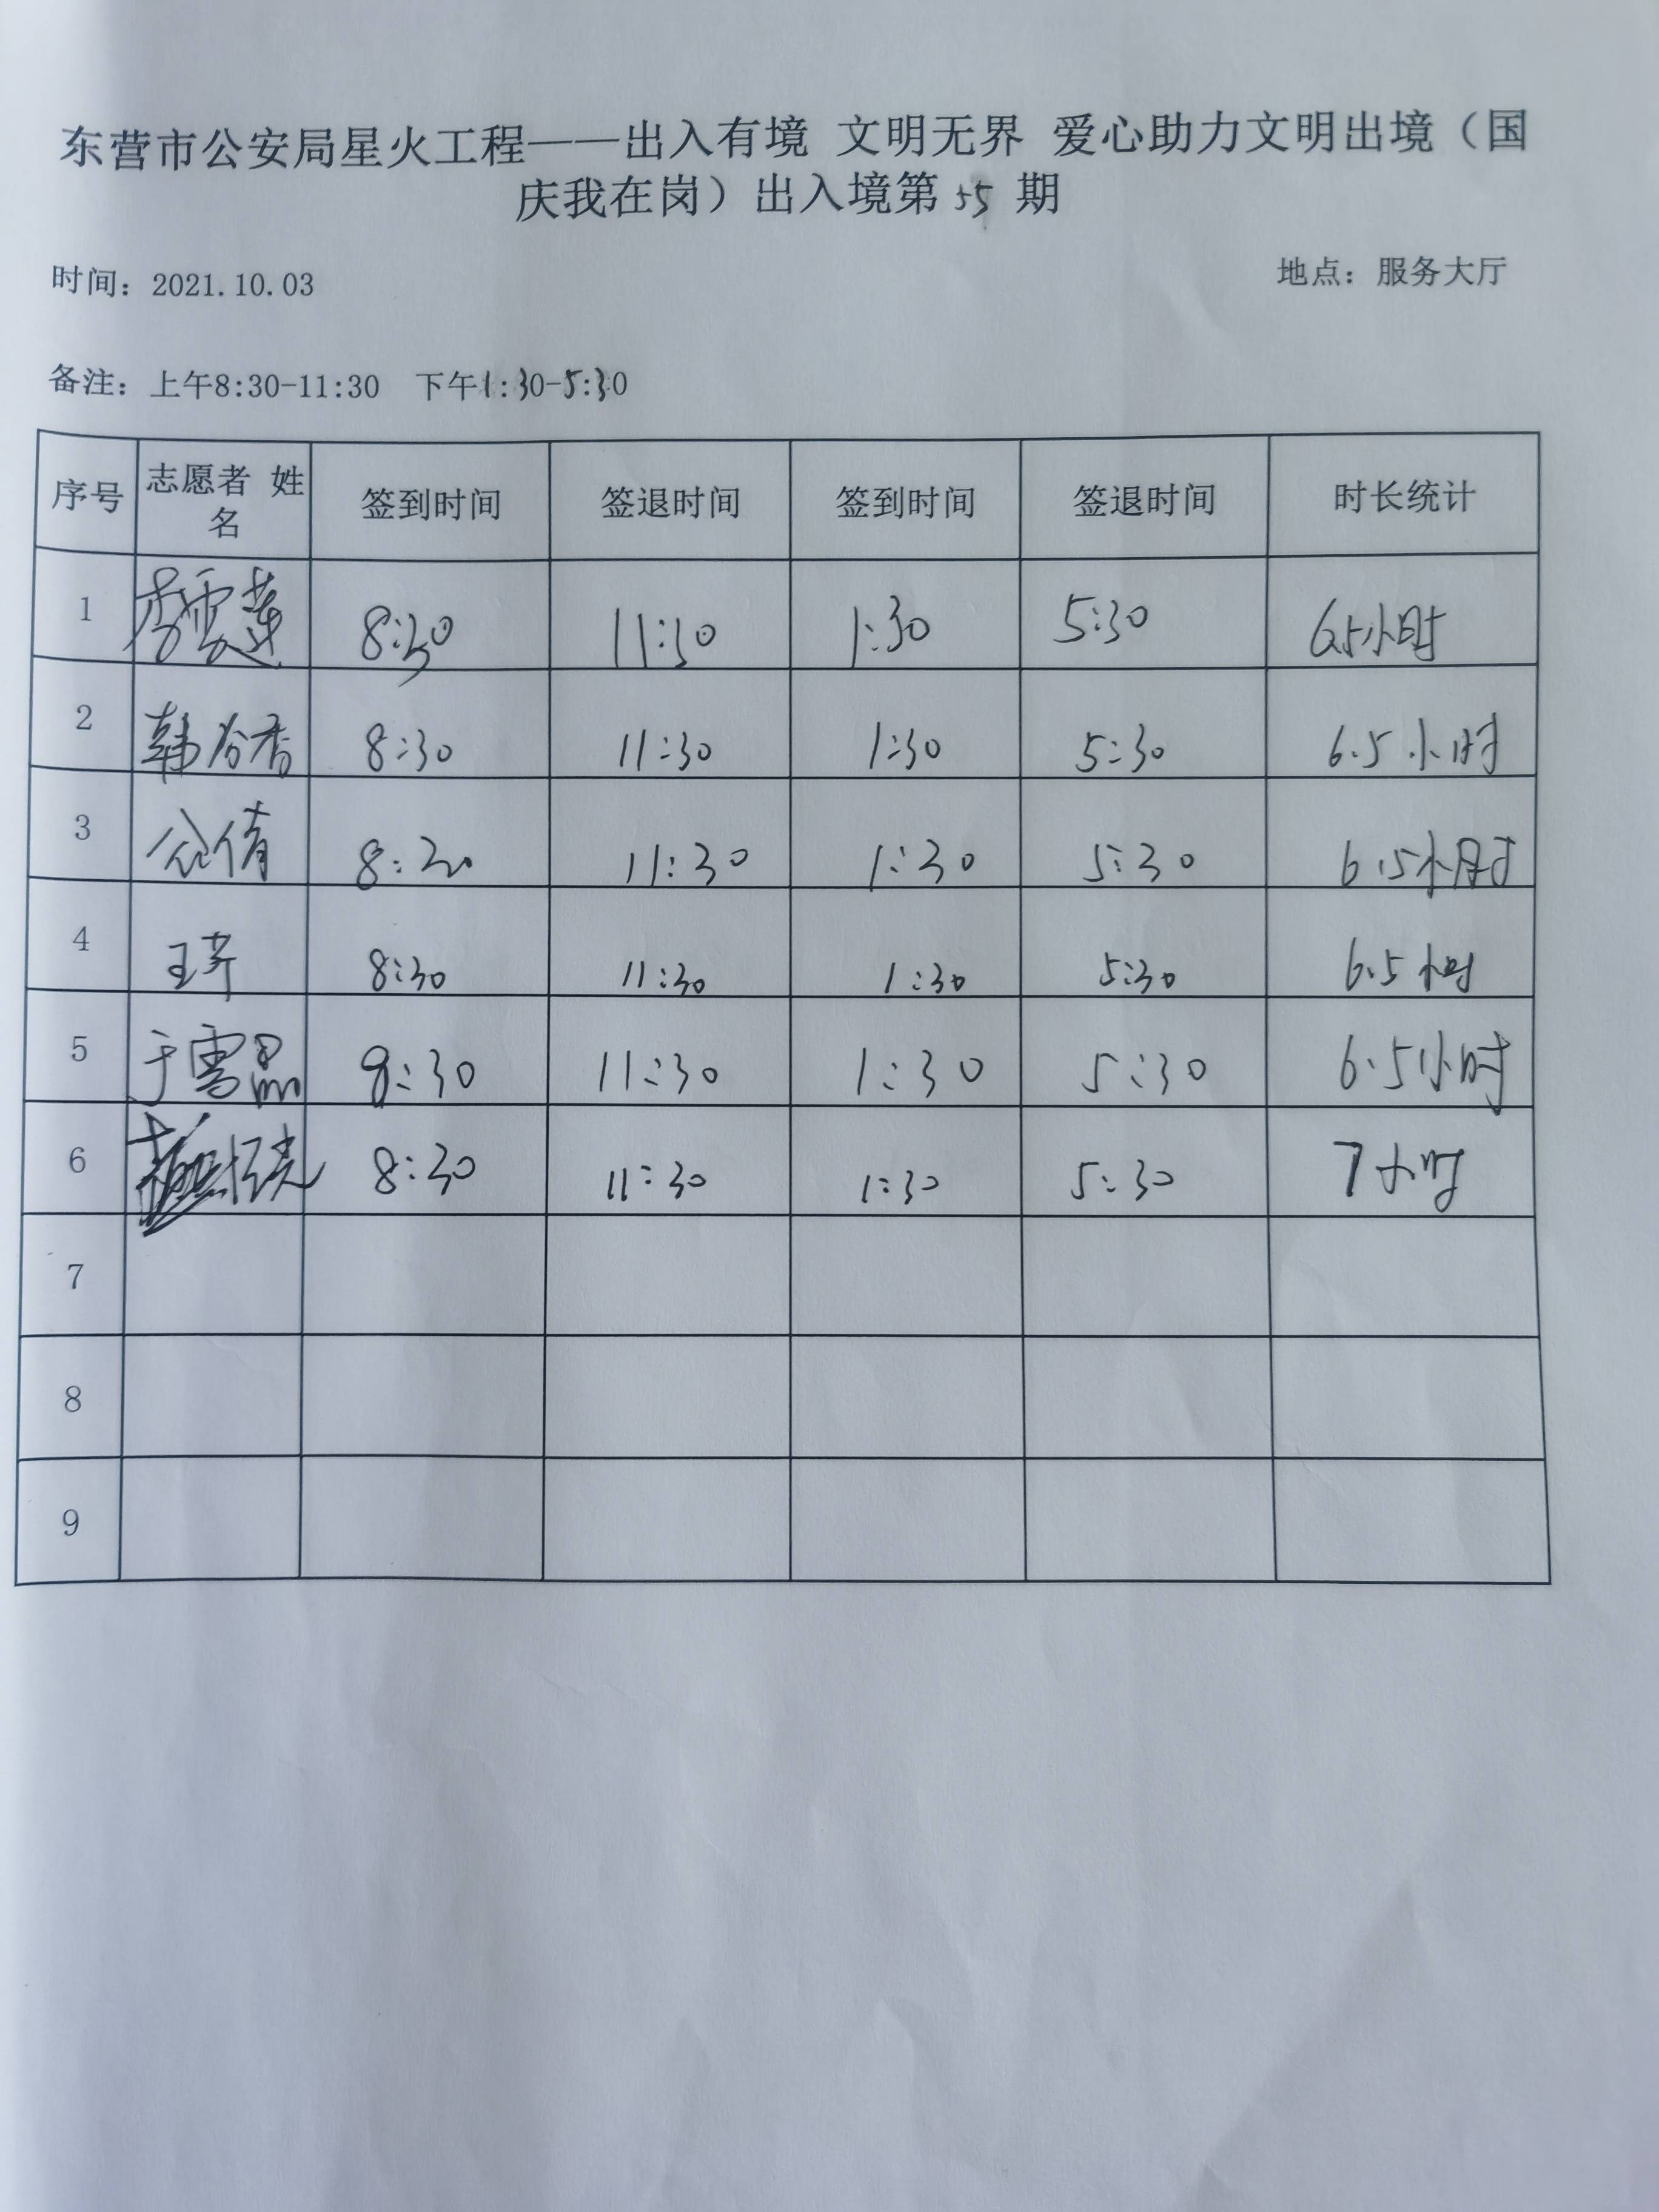 东营市公安局星火工程——出入有境 文明无界 爱心助力文明出境（国
庆我在岗）出入境第 期
时间：2021.10.03 地点：服务大厅
备注：上午8:30-11:30 下午1:30-5:30
序号 志愿者 姓名 签到时间 签退时间 签到时间 签退时间 时长统计
1 李雪莲 8:30 11:30 1:30 5:30 6.5小时
2 韩 香 8:30 11:30 1:30 5:30 6.5小时
3 倩 8:30 11:30 1:30 5:30 6.5小时
4 王芹 8:30 11:30 1:30 5:30 6.5小时
5 于雪晶 8:30 11:30 1:30 5:30 6.5小时
6 8:30 11:30 1:30 5:30 7小时
7
8
9